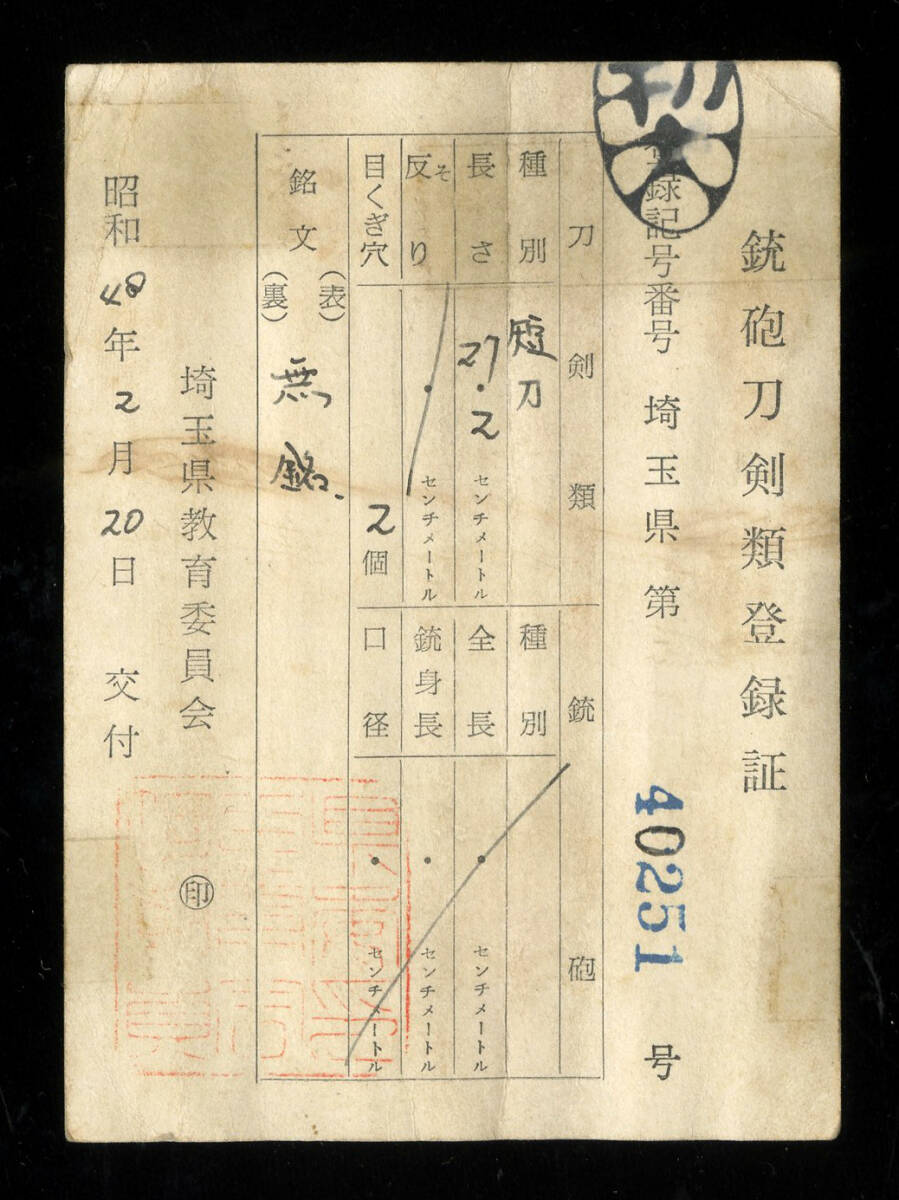 銃砲刀剣類登録証
登録記号番号 埼玉県 第 40251 号
刀剣類
種別 短刀
長さ 27.2 センチメートル
反り そ ・ センチメートル
目くぎ穴 2個
銃砲
種別
全長 ・ センチメートル
銃身長 ・ センチメートル
口径 ・ センチメートル
銘文
(表)
(裏)
無銘、
埼玉県教育委員会 ㊞
昭和48年2月20日 交付